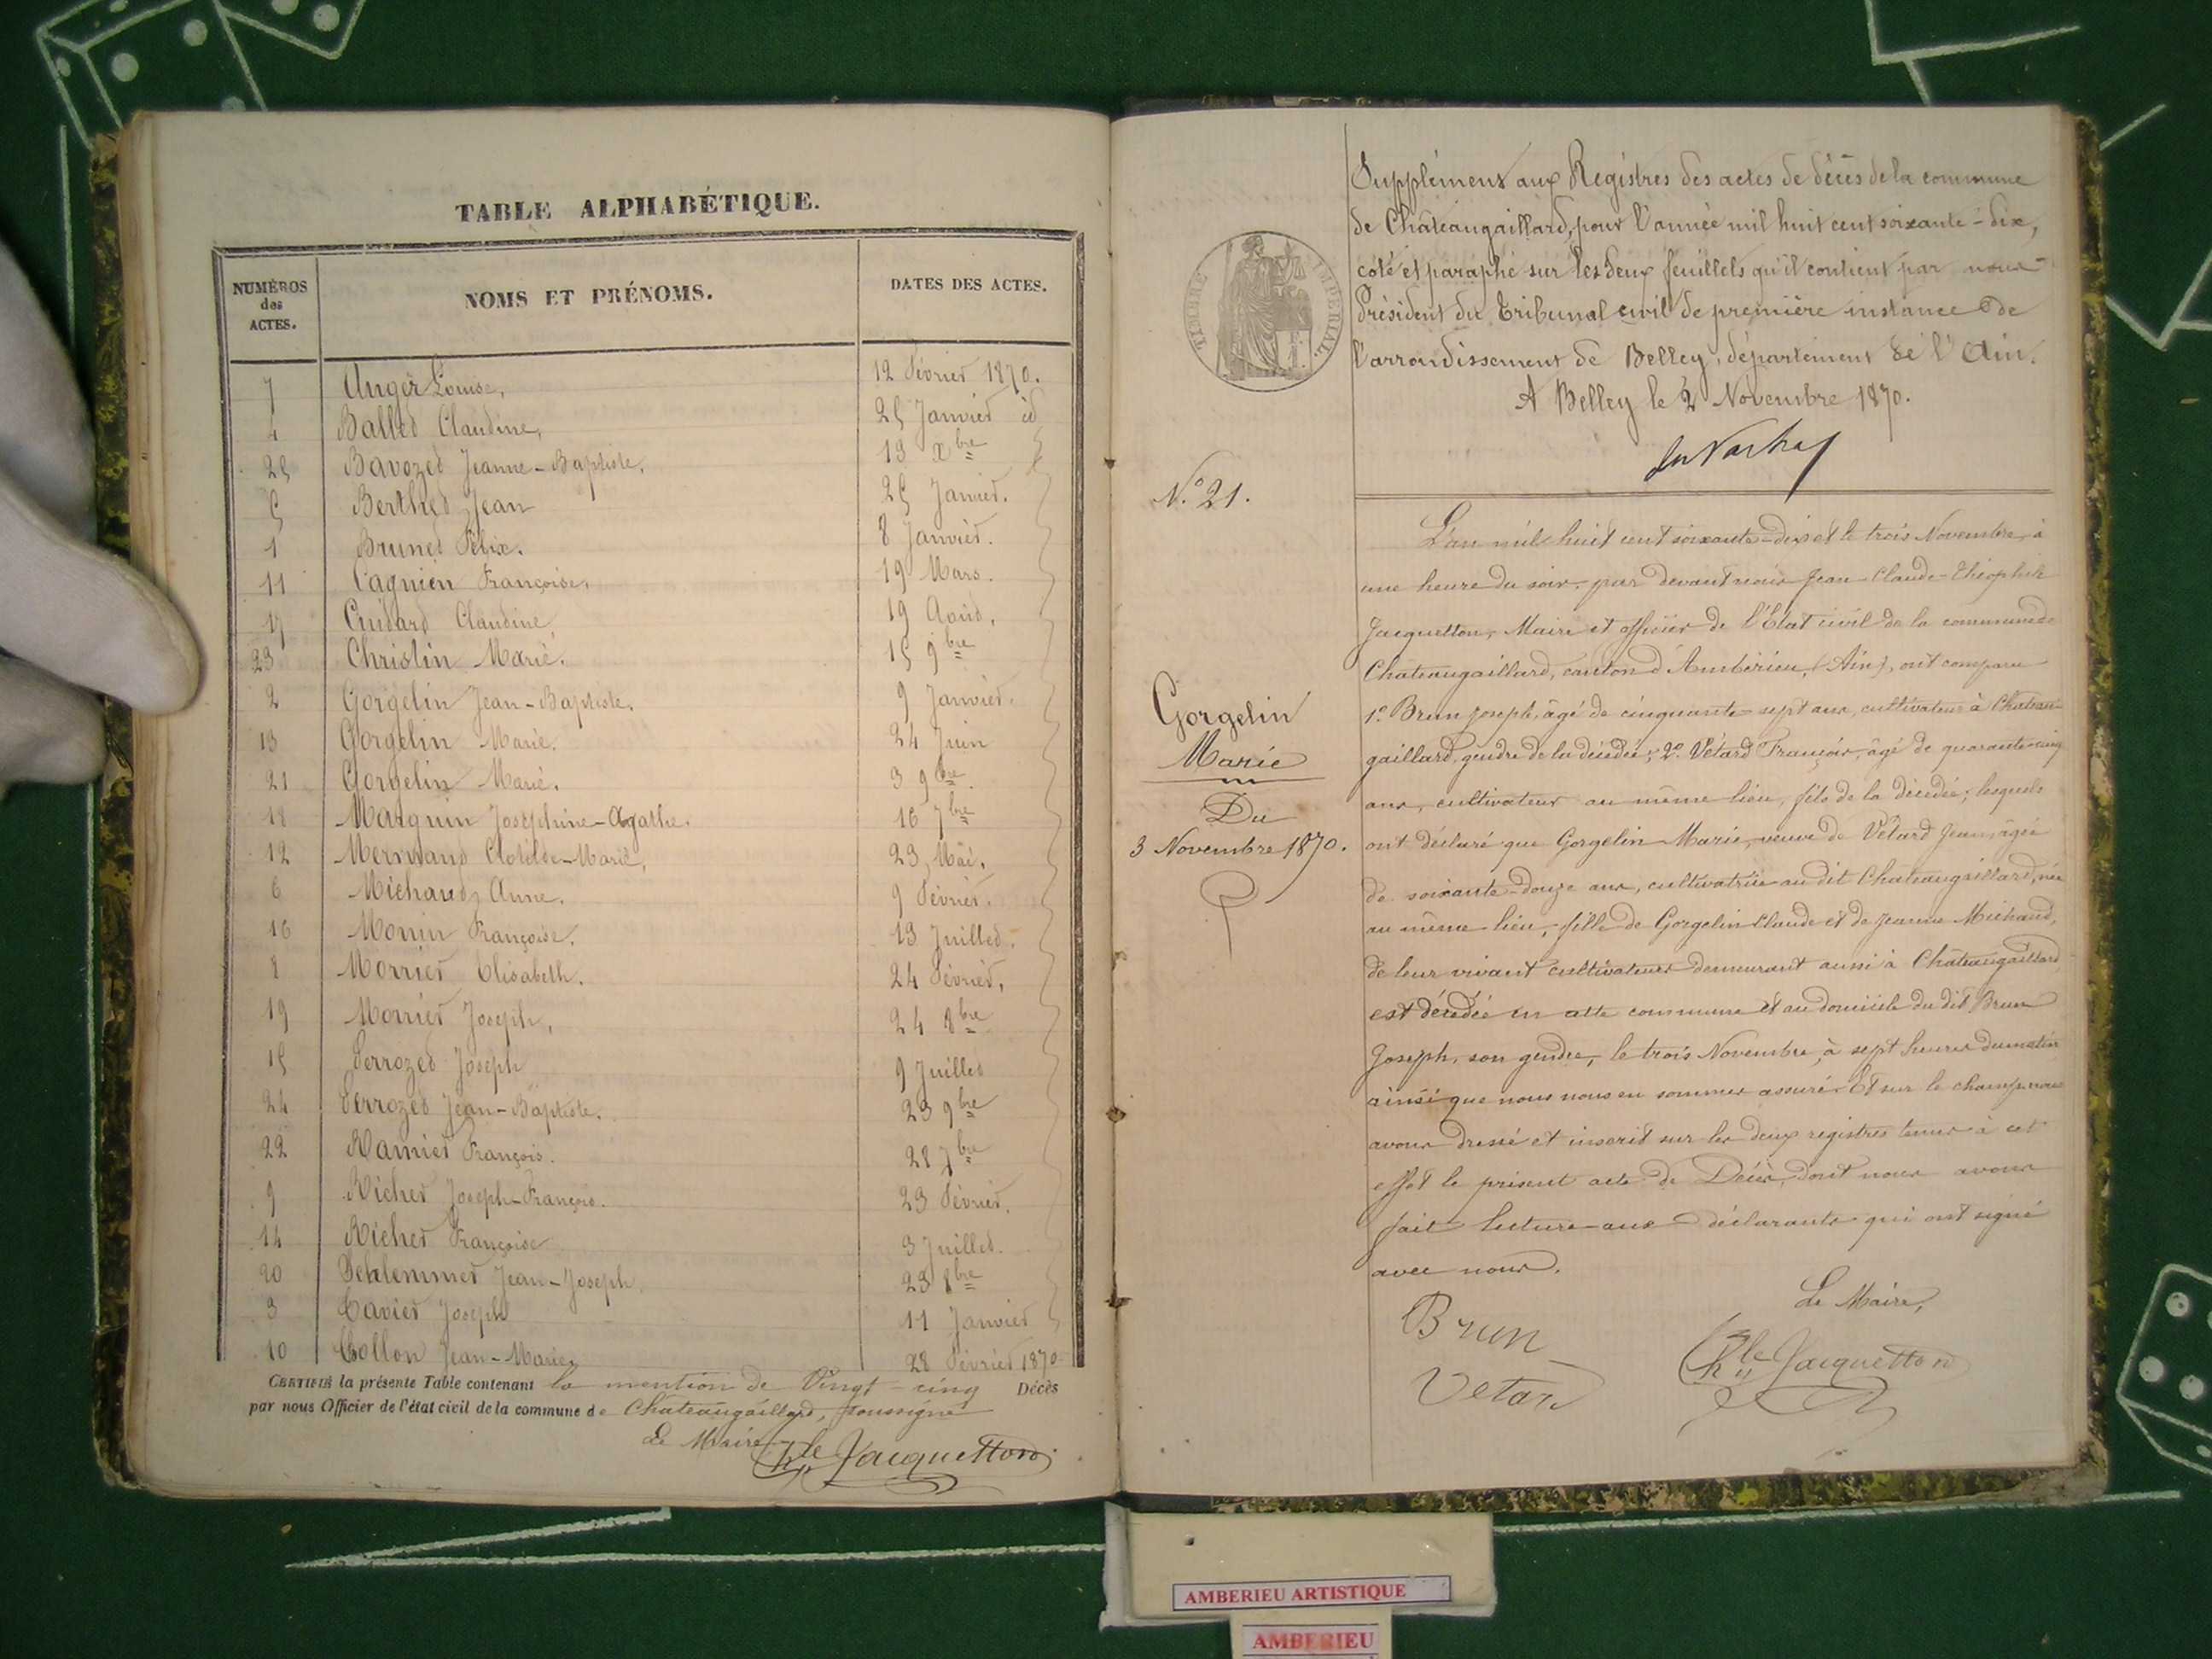 TABLE ALPHABÉTIQUE.
NUMÉROS des ACTES.
NOMS ET PRÉNOMS.
DATES DES ACTES.
7 Anger Louise, 12 Février 1870.
4 Ballet Claudine, 25 Janvier id
25 Bavozet Jeanne-Baptiste. 13 Xbre
5 Berthet Jean 25 Janvier.
1 Brunet Félix. 8 Janvier.
11 Cagnien Françoise. 19 Mars.
17 Claudine, 19 Août.
23 Christin Marie. 15 9bre
2 Gorgelin Jean-Baptiste. 9 Janvier.
13 Gorgelin Marie. 24 Juin
21 Gorgelin Marie. 3 9bre.
18 Marguin Joséphine-Agathe. 16 7bre
12 Mermand Clotilde-Marie, 23 Mai.
6 Michaud Anne. 9 Février.
16 Monin Françoise. 13 Juillet.
8 Morrier Elisabeth. 24 Février,
19 Morrier Joseph, 24 8bre
15 Perrozet Joseph 9 Juillet
24 Perrozet Jean-Baptiste. 23 9bre
22 Ramier François. 28 7bre
9 Richer Joseph-François. 23 Février.
14 Richer Françoise 3 Juillet.
20 Schlemmer Jean-Joseph. 29 8bre
3 Tavier Joseph 11 Janvier
10 Tollon Jean-Marie. 28 Février 1870
CERTIFIÉ la présente Table contenant la mention de Vingt-cinq Décès
par nous Officier de l'état civil de la commune de Châteaugaillard, soussigné
Le Maire
Jacquetton
TIMBRE IMPÉRIAL.
Supplément aux Registres des actes de décès de la commune
de Châteaugaillard, pour l'année mil huit cent soixante-dix,
côté et paraphé sur les deux feuillets qu'il contient par nous
Président du Tribunal civil de première instance de
l'arrondissement de Belley, département de l'Ain.
A Belley le 2 Novembre 1870.
N.o 21.
Gorgelin
Marie
Du
3 Novembre 1870.
L'an mil huit cent soixante-dix et le trois Novembre, à
une heure du soir, par devant nous Jean-Claude-Théophile
Jacquetton, Maire et officier de l'Etat civil de la commune de
Chateaugaillard, canton d'Ambérieu, (Ain), ont comparu
1.o Brun Joseph, âgé de cinquante-sept ans, cultivateur à Chateau-
gaillard, gendre de la décédée; 2.o Vétard François, âgé de quarante-cinq
ans, cultivateur au même lieu, fils de la décédée; lesquels
ont déclaré que Gorgelin Marie, veuve de Vétard Jean, âgée
de soixante-douze ans, cultivatrice au dit Chateaugaillard, née
au même lieu, fille de Gorgelin Claude et de Jeanne Michaud,
de leur vivant cultivateurs demeurant aussi à Châteaugaillard,
est décédée en cette commune et au domicile du dit Brun
Joseph, son gendre, le trois Novembre, à sept heures du matin
ainsi que nous nous en sommes assuré. Et sur le champ nous
avons dressé et inscrit sur les deux registres tenus à cet
effet le présent acte de Décès, dont nous avons
fait lecture aux déclarants qui ont signé
avec nous.
Le Maire,
Brun
Vetard
Jacquetton
AMBERIEU ARTISTIQUE
AMBERIEU